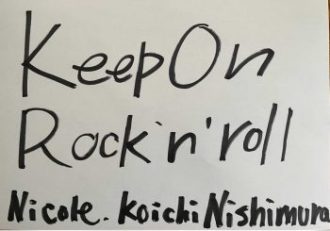 Keep On
Rock'n'roll
Nicole. Koichi Nishimura